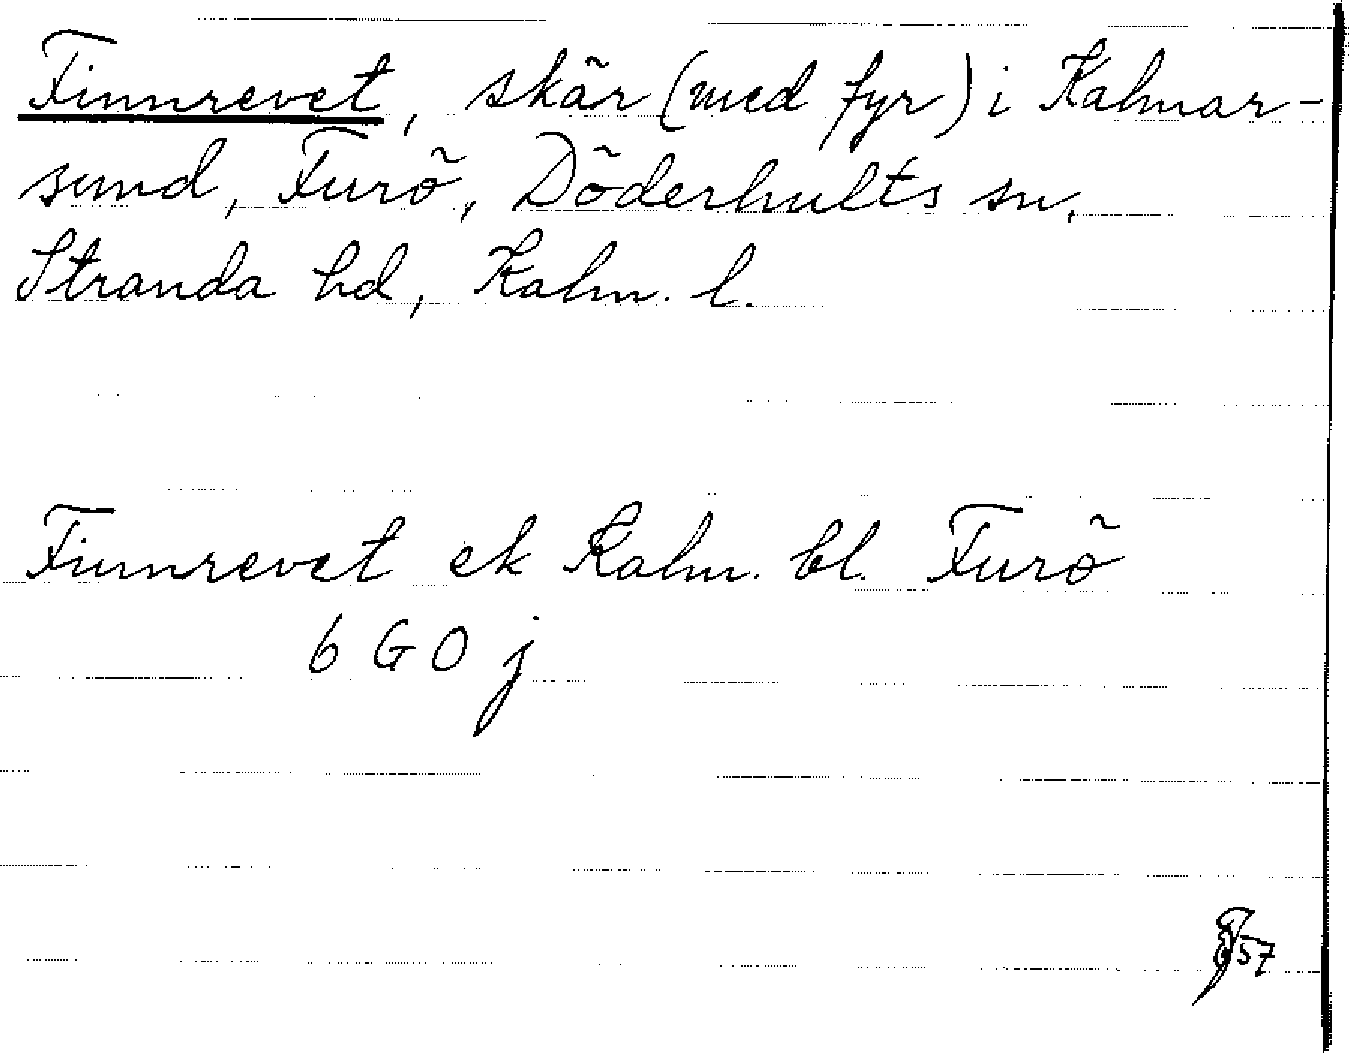 Finnrevet, skär (med fyr) i Kalmar-
sund, Furö, Döderhults sn,
Stranda hd, Kalm. l.
Finnrevet ek Kalm. bl. Furö
6 G 0 j
57